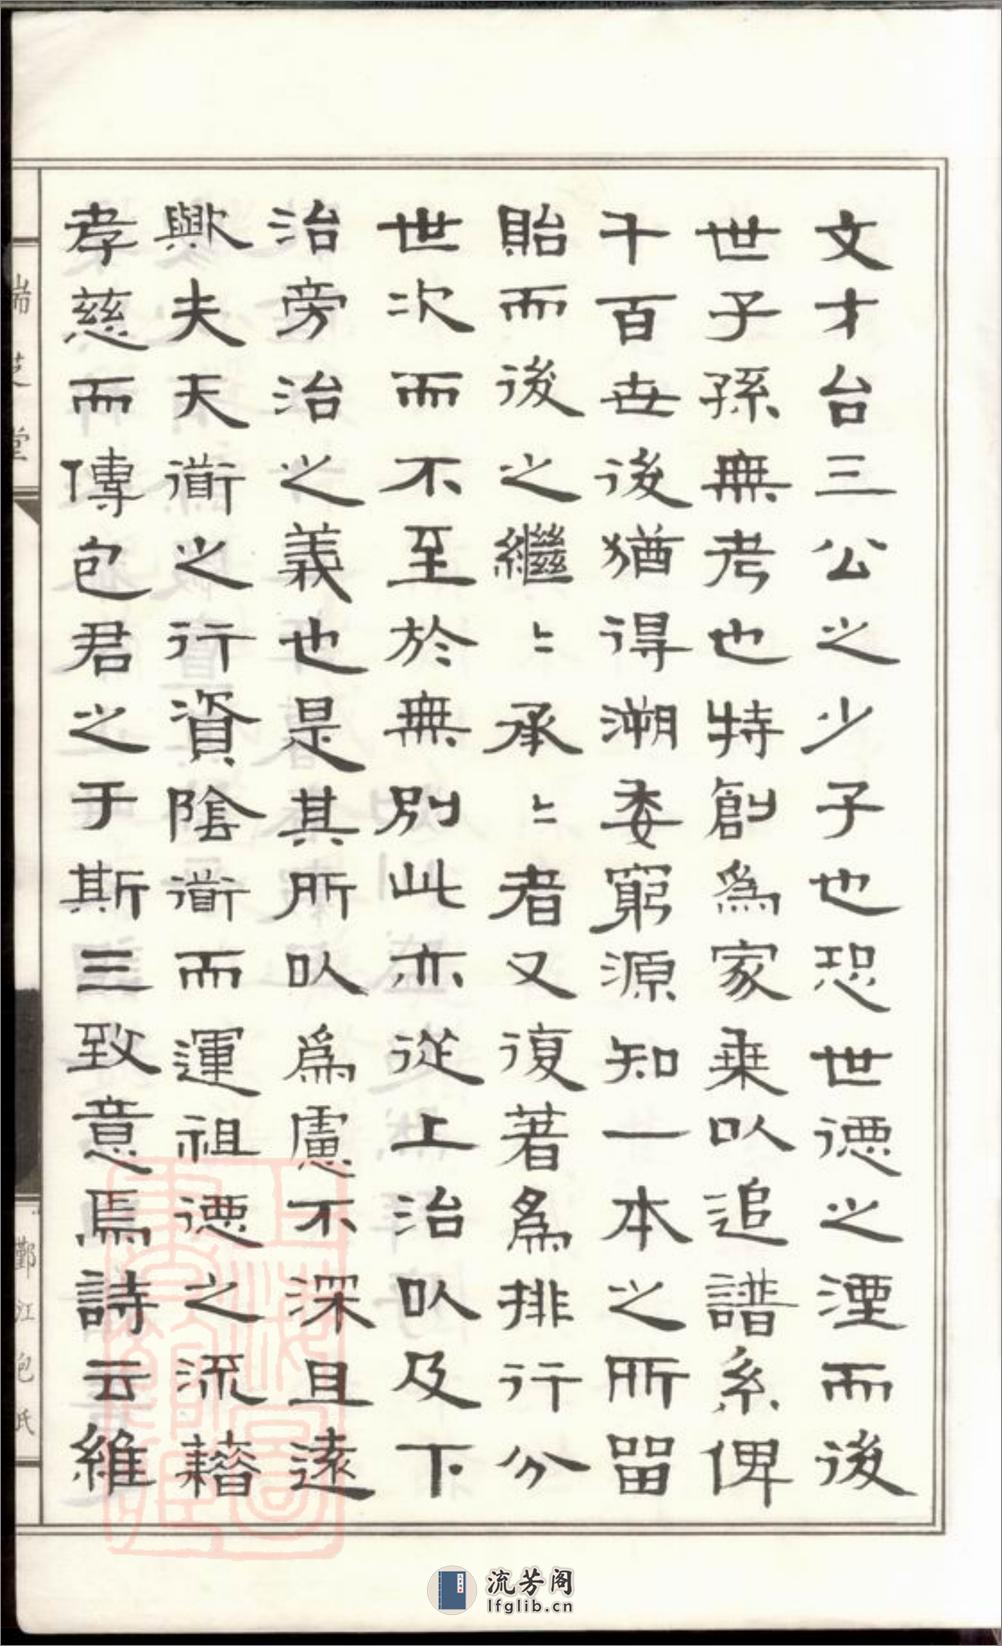 文才台三公之少子也恐世德之湮而後
世子孫無考也特創為家乗以追譜系俾
千百世後猶得溯委窮源知一本之所留
貽而後之繼〻承〻者又復著為排行分
世次而不至於無別此亦從上治以及下
治旁治之義也是其所以為慮不深且遠
歟夫天衜之行資陰衜而運祖德之流藉
孝慈而傳包君之于斯三致意焉詩云維
芝堂
鄞江包氏
上海圖書館藏
流芳阁
lfglib.cn